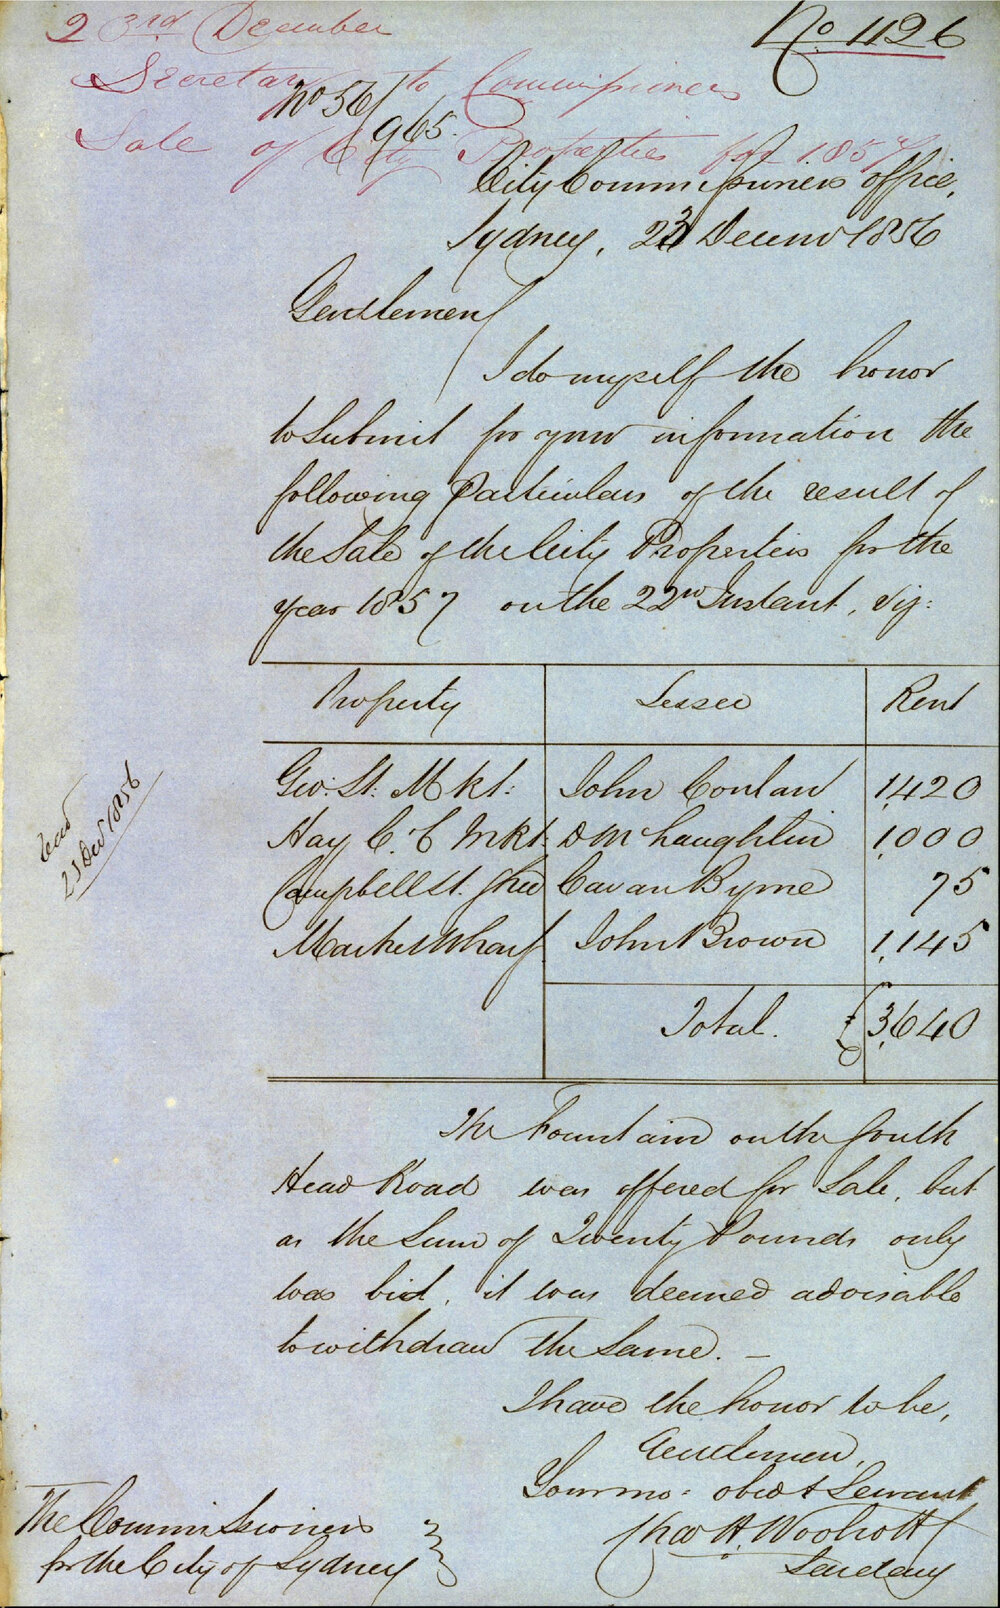 23rd December
No 1126
Secretary to Commissioners
No 56/965.
Sale of City Properties for 1857
City Commissioners office,
Sydney, 23 Decemr 1856
Gentlemen
I do myself the honor
to Submit for your information the
following Particulars of the result of
the Sale of the City Properties for the
year 1857 on the 22nd Instant, viz:
Property Lessee Rent
Geo. St. Mkt: John Conlan 1,420
Hay & C Mkt D McLaughlin 1,000
Campbell St. Ghee Cavan Byrne 75
Market Wharf John Brown 1,145
Total. £ 3,640
Read
23 Decr 1856
The Fountain on the South
Head Road was offered for Sale, but
as the Sum of Twenty Pounds only
was bid, it was deemed advisable
to withdraw the Same. —
I have the honor to be,
Gentlemen,
Your mo: obedt Servant
Chas H. Woolcott
Secretary
The Commissioners
for the City of Sydney